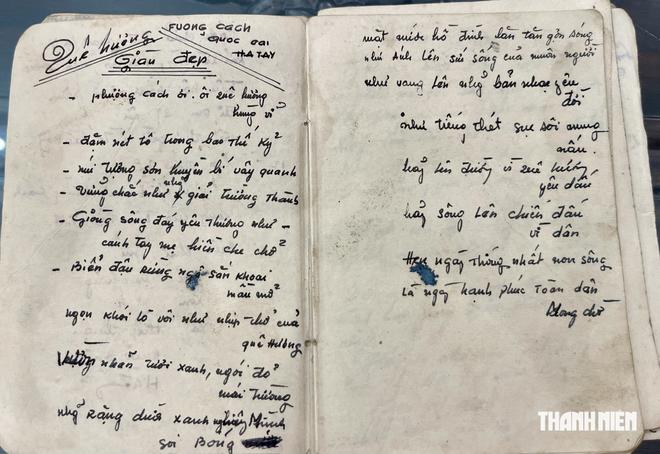 Quê hương
FUONG CACH
QUOC OAI
HA TAY
Giàu đẹp
- phượng cách ơi. ôi quê hương
hùng vĩ
- đậm nét tô trong bao thế kỷ
- núi tường sơn huyền bí vây quanh
- vững chắc như những giải trường thành
- Giòng sông đáy yêu thương như -
cánh tay mẹ hiền che chở
- Biển dâu rừng ngô sắn khoai
mầu mỡ
ngọn khói lò vôi như nhịp thở của
quê Hương
nhãn tươi xanh, ngói đỏ
mái trường
nhỡ Rặng dừa xanh nghiêng Mình
soi Bóng
mặt nước hồ đình lăn tăn gợn sóng
như ánh lên sức sống của muôn người
như vang lên những bản nhạc yêu
đời
như tiếng thét sục sôi nung
nấu.
hãy tiến vì quê hương
yêu dấu
hãy sông lên chiến đấu
vì dân
Hẹn ngày thống nhất non sông
là ngày hạnh phúc toàn dân
Mong chờ
THANH NIÊN